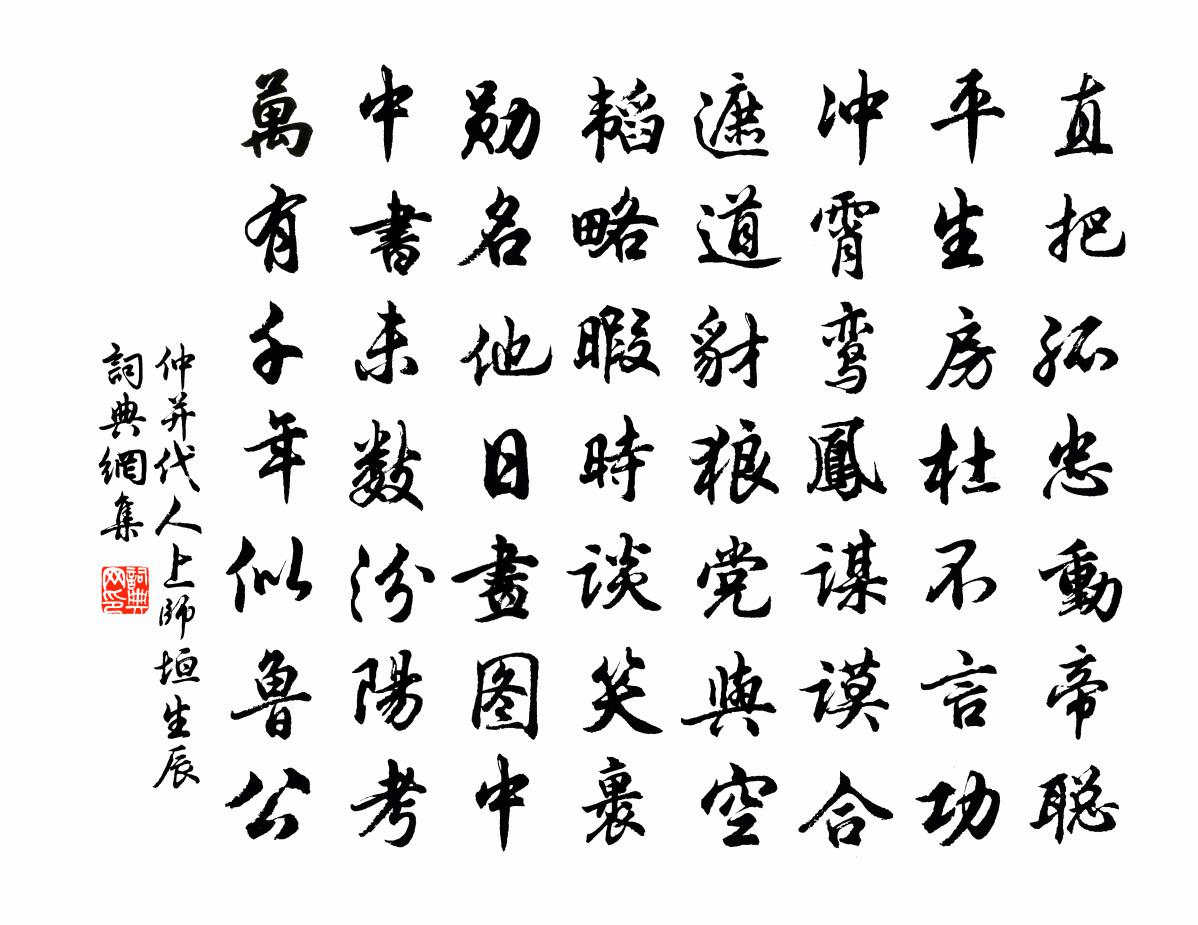 直把孤忠動帝聡
平生房杜不言功
冲霄鸾鳳謀謨合
遮道豺狼党與空
韬略暇時谈笑裏
勋名他日畫图中
中書未数汾陽考
萬有千年似魯公
仲并代人上師垣生辰
詞典網集
詞典网印